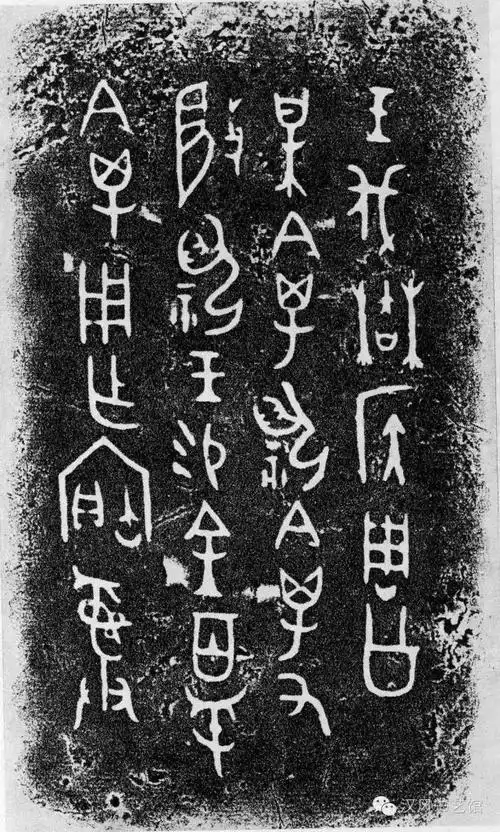 王伐侯周公
某禽祝禽又
敐祝王易金百寽
禽用乍寶彝
汉风艺馆